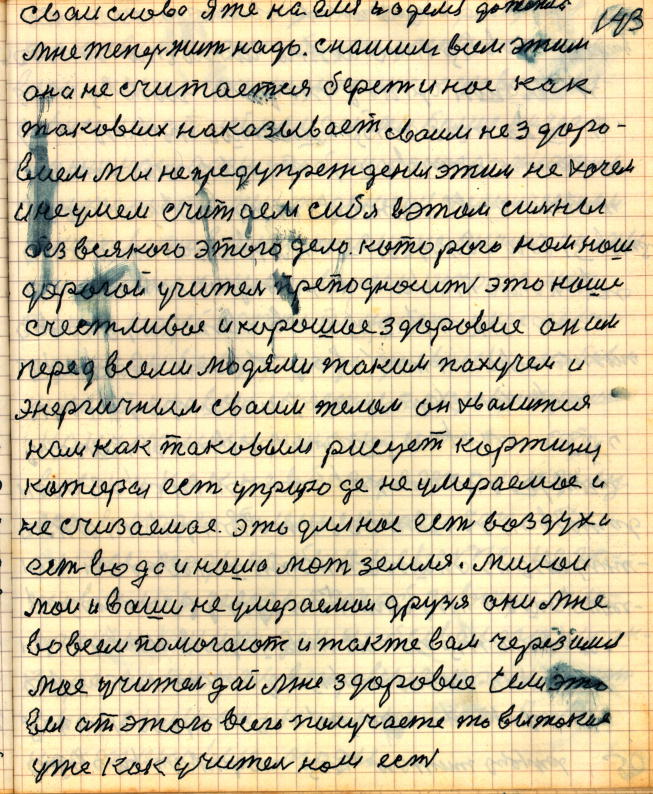 143
сваи слова я же на еля и одемя
мне тепер жит надо. снашим всем этим
она не считается берет и нас как
таковых наказывает сваим не здоро-
вием мы не предупреждены этим не хочем
и не умем считаем сибя в этом силныи
без всякого этого дела. которого нам наш
дорогой учител преподносит это наше
счестливое и харошое здоровие он им
перед всеми людями таким пахучем и
энергичным сваим телом он хвалится
нам как таковым рисует картину
котороя ест у природе не умераемое и
не счизаемае. это для нас ест воздух и
ест вода и наша мат земля. милои
мои и ваши не умераемаи друзя они мне
во всем помогают и также вам через имя
мое учител дай мне здоровие Если это
вы ат этого всего получаете то вы
уже как учител нам ест